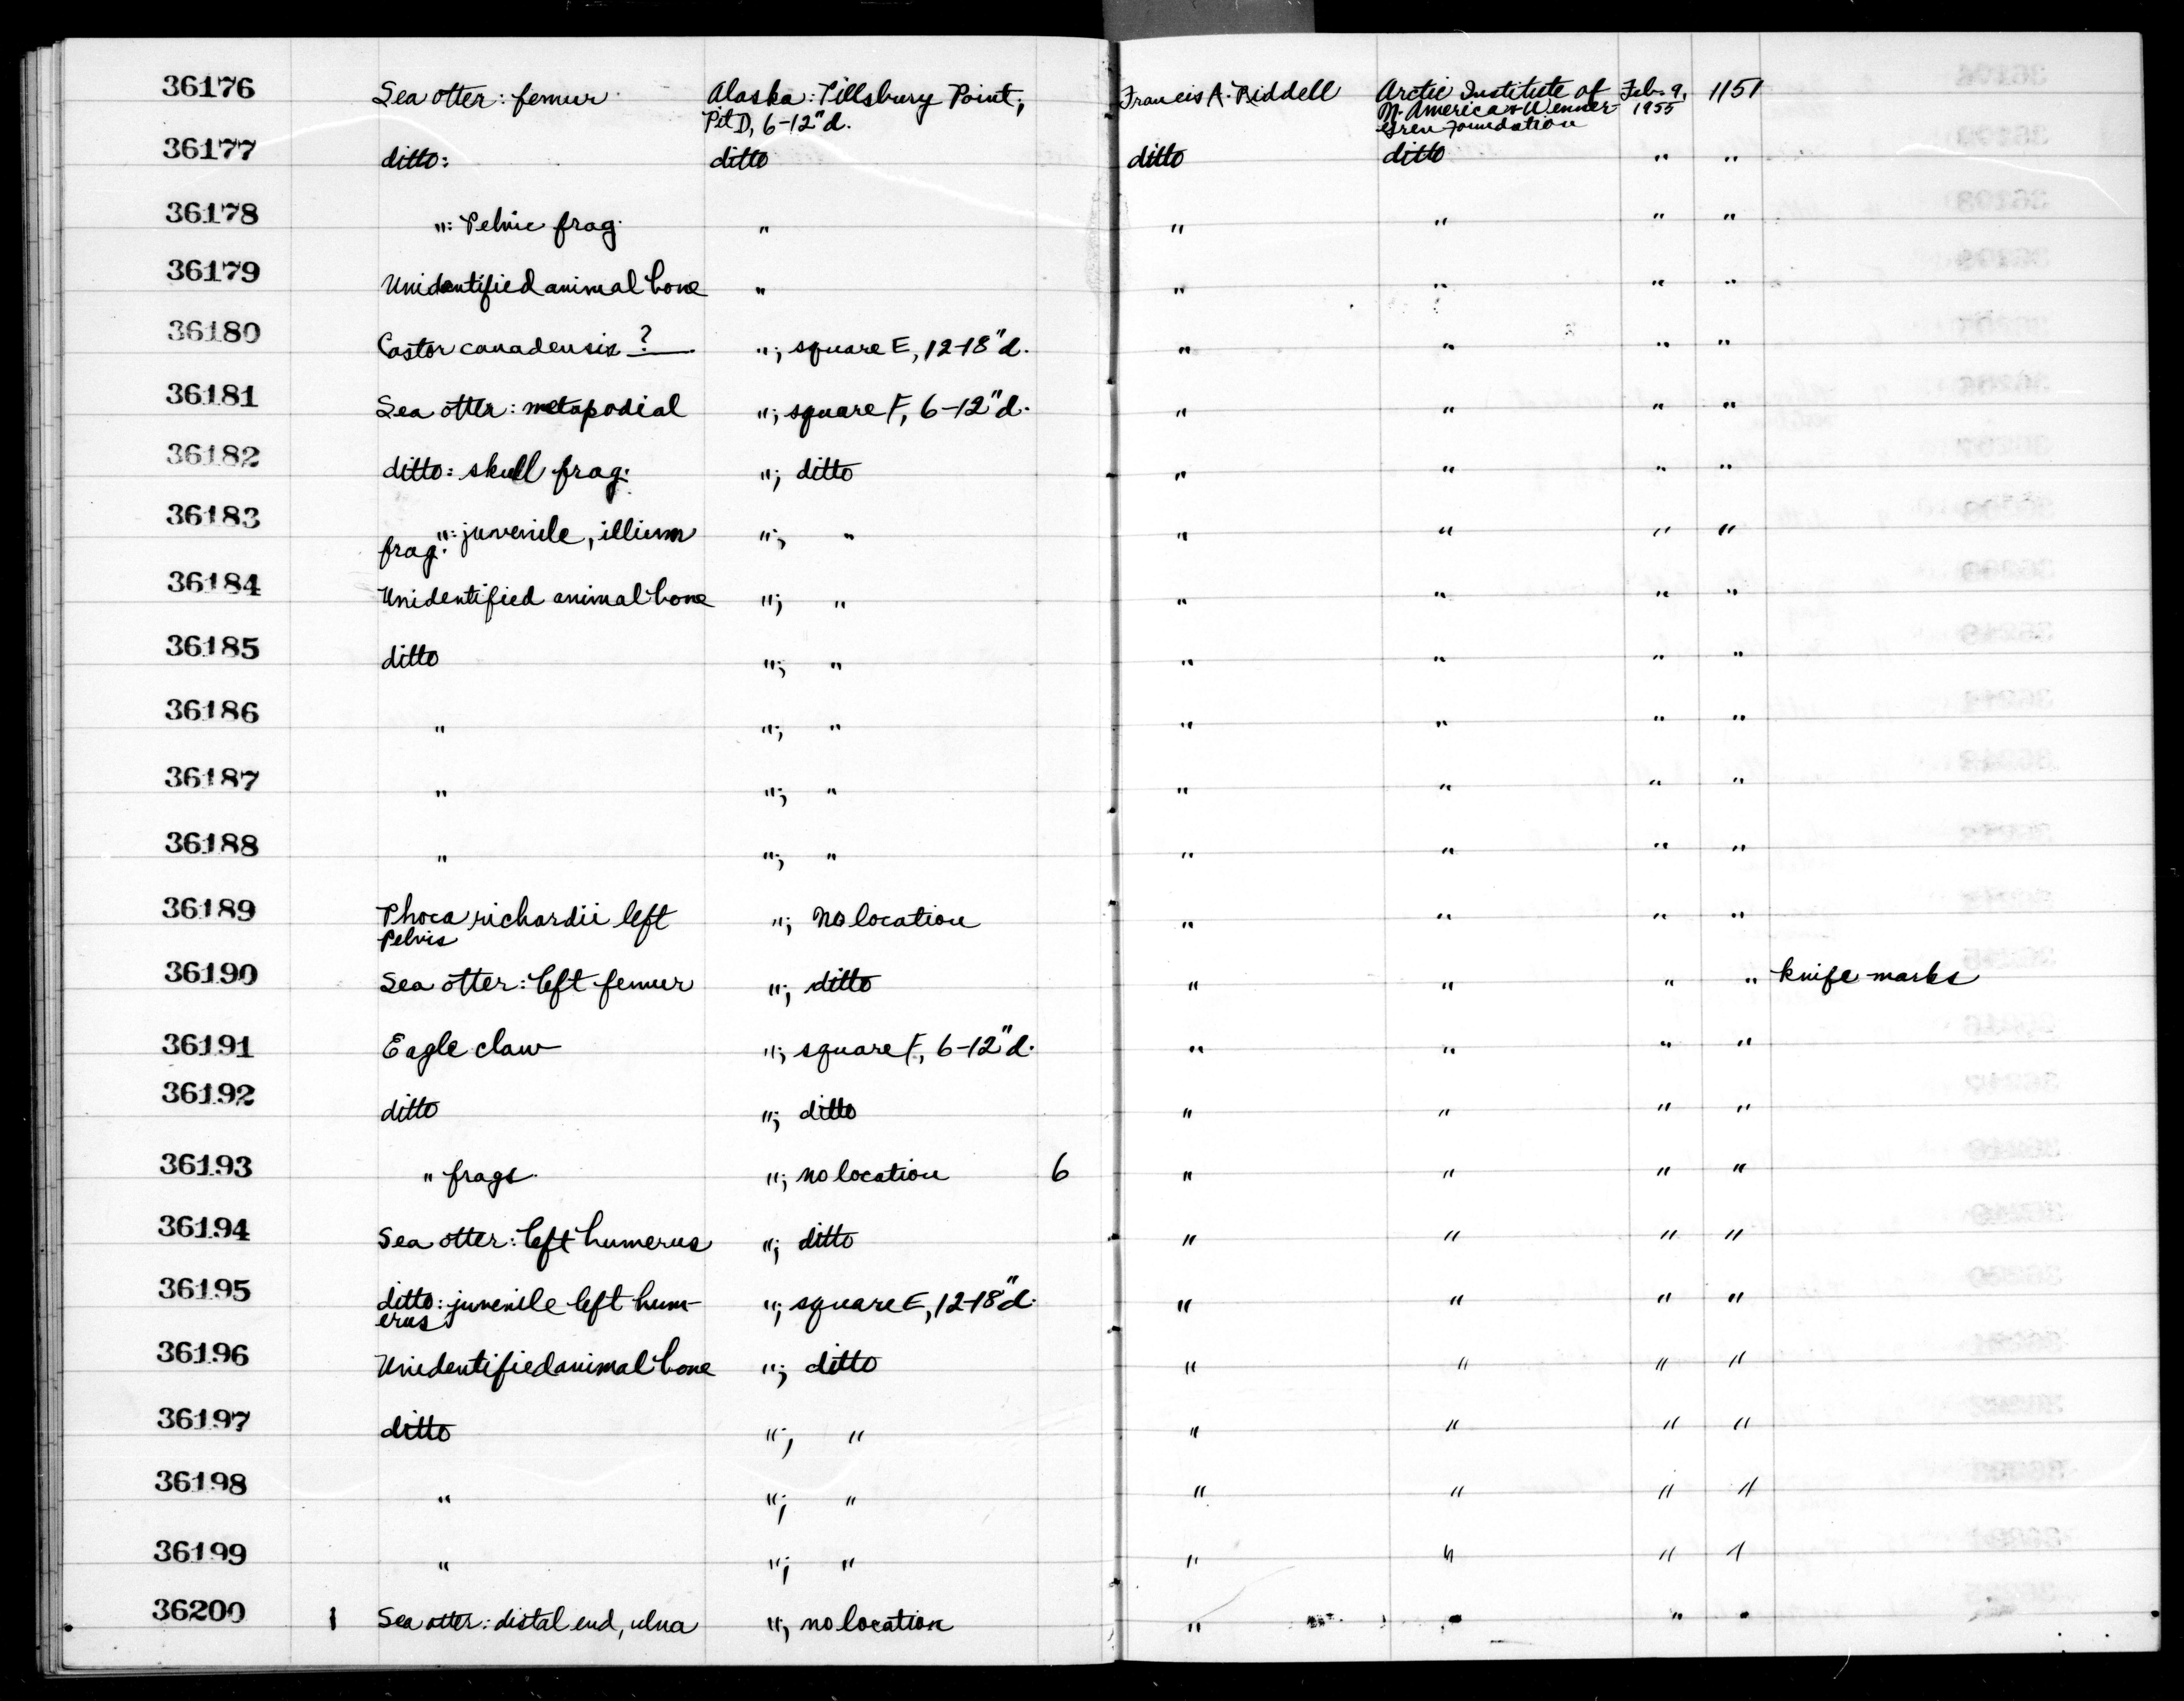 36176 Sea otter: femur Alaska: Tillsbury Point; Francis A. Riddell Arctic Institute of Feb. 9, 1151
Pit D, 6-12" d. N. America & Wenner- 1955
Gren Foundation
36177 ditto: ditto ditto ditto " "
36178 ": Pelvic frag. " " " " "
36179 Unidentified animal bone " " " " "
36180 Castor canadensis ? "; square E, 12-18" d. " " " "
36181 Sea otter: metapodial "; square F, 6-12" d. " " " "
36182 ditto: skull frag. "; ditto " " " "
36183 ": juvenile, illium "; " " " " "
frag.
36184 Unidentified animal bone "; " " " " "
36185 ditto "; " " " " "
36186 " "; " " " " "
36187 " "; " " " " "
36188 " "; " " " " "
36189 Phoca richardii left "; No location " " " "
Pelvis
36190 Sea otter: left femur "; ditto " " " " knife marks
36191 Eagle claw "; square F, 6-12" d. " " " "
36192 ditto "; ditto " " " "
36193 " frags. "; no location 6 " " " "
36194 Sea otter: left humerus "; ditto " " " "
36195 ditto: juvenile left hum- "; square E, 12-18" d. " " " "
erus
36196 Unidentified animal bone "; ditto " " " "
36197 ditto "; " " " " "
36198 " "; " " " " "
36199 " "; " " " " "
36200 1 Sea otter: distal end, ulna "; no location " " " "